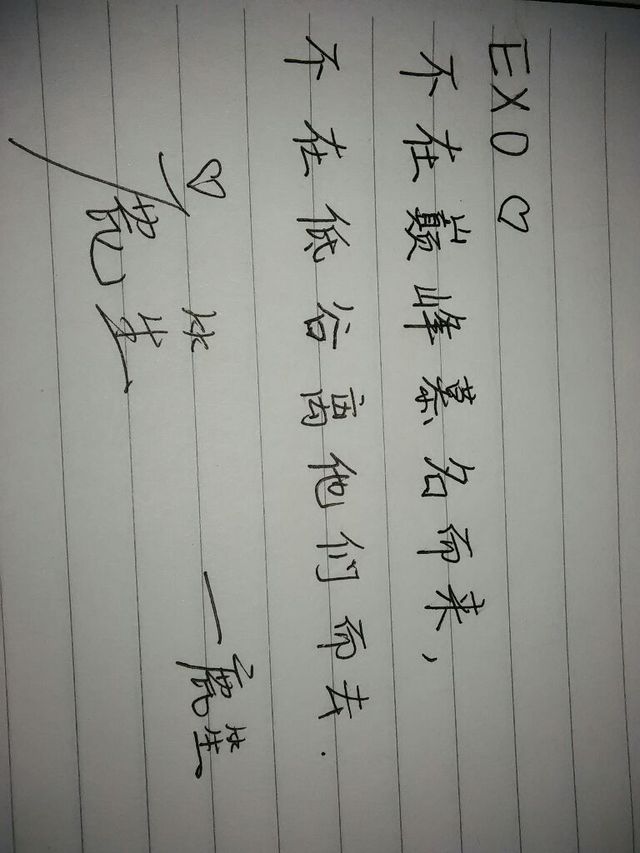 EXO ♡
不在巅峰慕名而来，
不在低谷离他们而去.
—鹿笙
♡
鹿笙